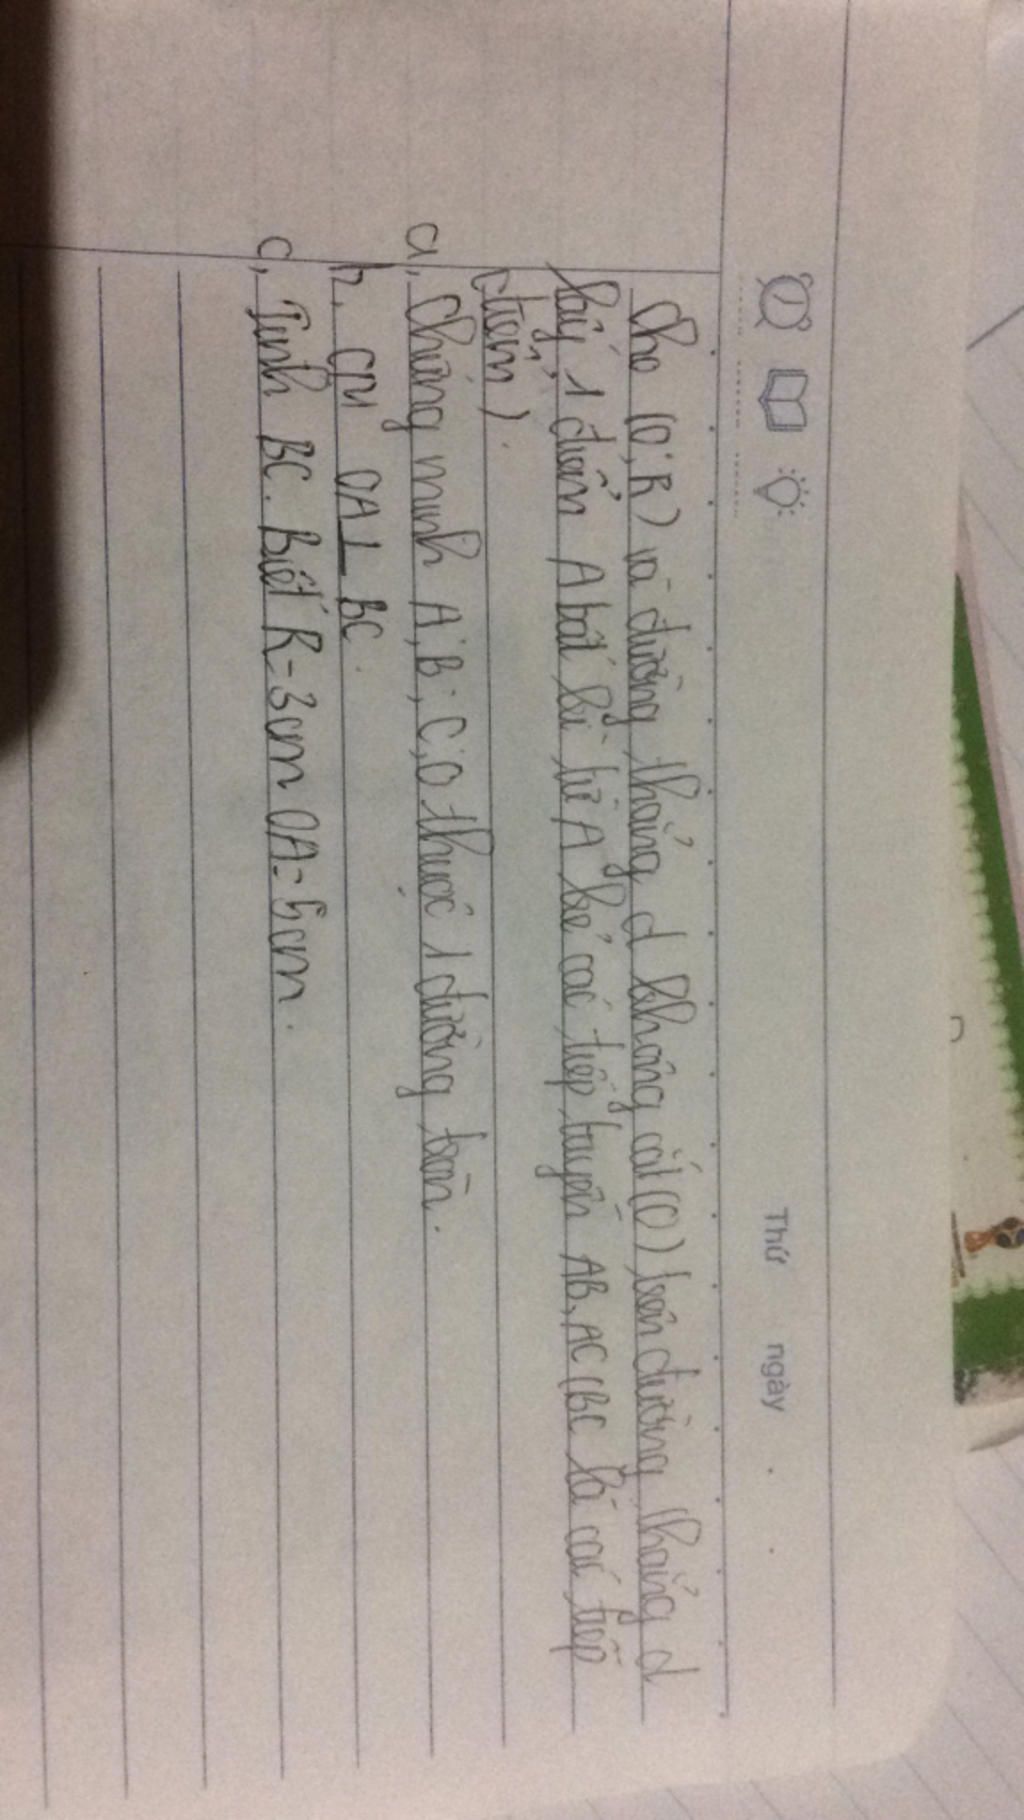 Thứ ngày . .
Cho (O;R) và đường thẳng d không cắt (O) trên đường thẳng d
lấy 1 điểm A bất kì từ A kẻ các tiếp tuyến AB, AC (BC là các tiếp
điểm).
a, Chứng minh A; B; C; O thuộc 1 đường tròn.
b, CM OA ⊥ BC.
c, Tính BC. Biết R = 3cm OA = 5cm.